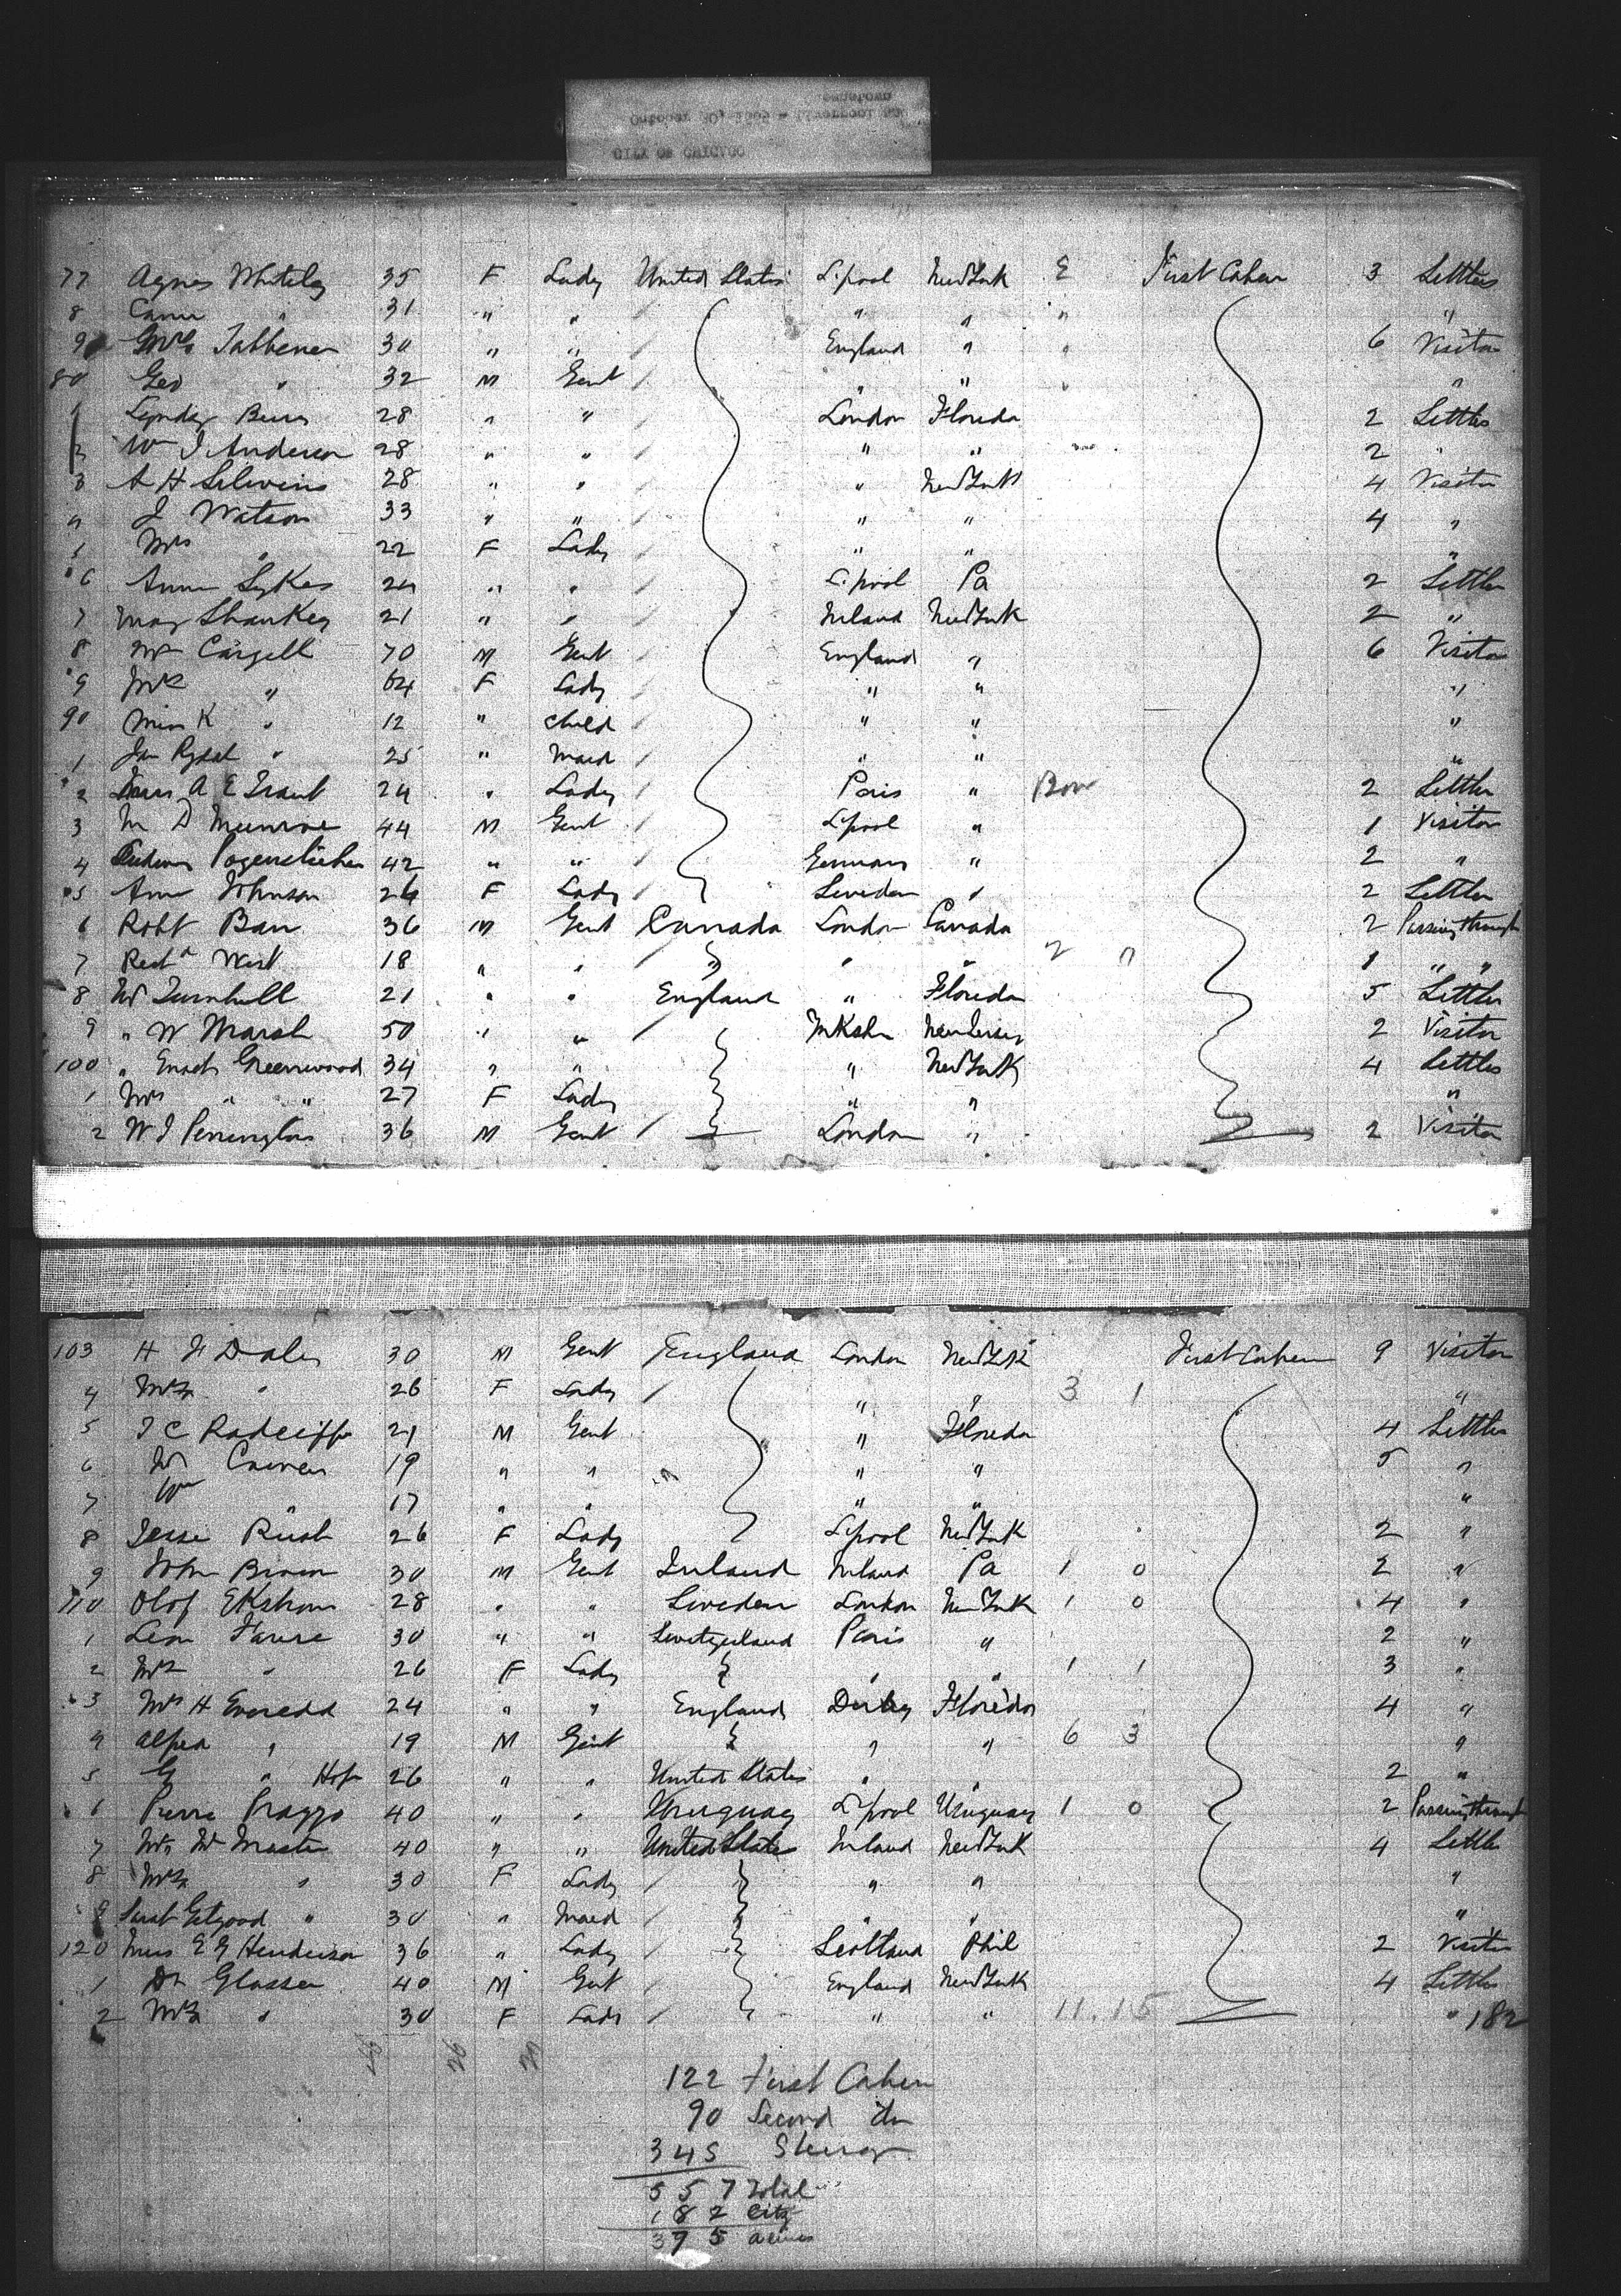 October 30, 1889 - Liverpool and
CITY OF CHICAGO
77 Agnes Whiteley 35 F Lady United States L'pool New York E First Cabin 3 Settler
8 " 31 " " " " " "
9 Mrs 30 " " England " " 6 Visitor
80 Geo " 32 M Gent " " " "
1 28 " " London Florida 2 Settler
2 Wm J Anderson 28 " " " " 2 "
3 A H 28 " " " New York 4 Visitor
4 J Watson 33 " " " " 4 "
Mrs " 22 F Lady " " "
6 Annie Sykes 24 " " L'pool Pa 2 Settler
7 May Sharkey 21 " " Ireland New York 2 "
8 Mr Cargill 70 M Gent England " 6 Visitor
9 Mrs " 64 F Lady " " "
90 Miss K " 12 " child " " "
1 " 25 " Maid " " "
2 Miss A E 24 " Lady Paris " 2 Settler
3 M D Munroe 44 M Gent L'pool " 1 Visitor
4 42 " " Germany " 2 "
5 Anna Johnson 26 F Lady Sweden " 2 Settler
6 Robt Barr 36 M Gent Canada London Canada 2 Passing through
7 West 18 " " " " " 2 0 1 " "
8 W Turnbull 21 " " England " Florida 5 Settler
9 " W Marsh 50 " " Yorksh New Jersey 2 Visitor
100 " Enoch Greenwood 34 " " " New York 4 Settler
1 Mrs " " 27 F Lady " " "
2 W J Pennington 36 M Gent London " 2 Visitor
103 H H Daley 30 M Gent England London New York First Cabin 9 Visitor
4 Mrs " 26 F Lady " " 3 1 "
5 J C Radcliffe 21 M Gent " Florida 4 Settler
6 W 19 " " " " 5 "
7 " 17 " " " " "
8 Jesse Rush 26 F Lady L'pool New York 2 "
9 John 30 M Gent Ireland Ireland Pa 1 0 2 "
110 Olof Ekstrom 28 " " Sweden London New York 1 0 4 "
1 Leon Favre 30 " " Switzerland Paris " 2 "
2 Mrs " 26 F Lady " " 1 1 3 "
3 Mrs H Everedd 24 " " England Derby Florida 4 "
4 Alfred " 19 M Gent " " 6 3 "
5 G " 26 " " United States " " 2 "
6 Pierre 40 " " Uruguay L'pool Uruguay 1 0 2 Passing through
7 40 " " United States Ireland New York 4 Settler
8 Mrs " 30 F Lady " " "
9 Sarah Getgood " 30 " Maid " " "
120 Miss E G Henderson 36 " Lady Scotland Phil 2 Visitor
1 Dr Glasser 40 M Gent England New York 4 Settler
2 Mrs " 30 F Lady " " 11 . 15 " 182
122 First Cabin
90 Second do
345 Steerage
557 Total
182 Citz
375 Aliens